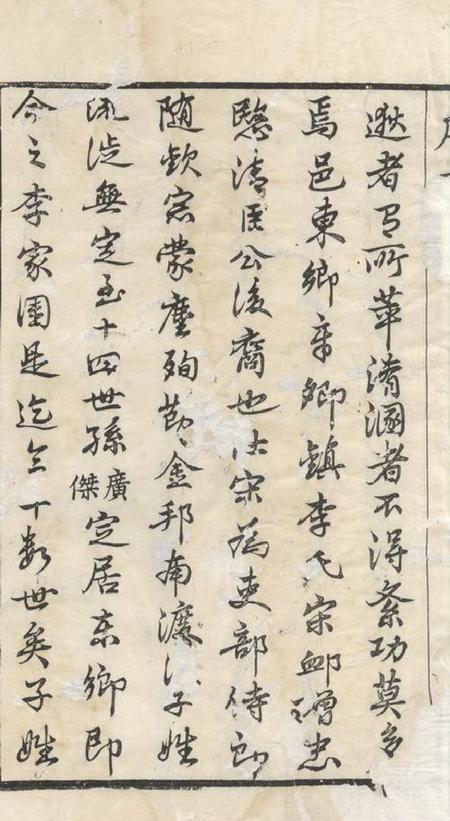 逖者有所萃淆溷者不得紊功莫多
焉邑東鄉章卿鎮李氏宋卹贈忠
愍清臣公後裔也仕宋為吏部侍郎
隨欽宗蒙塵殉節於金邦南渡後子姓
流徙無定至十四世孫廣傑定居東鄉即
今之李家園是迄今十數世矣子姓